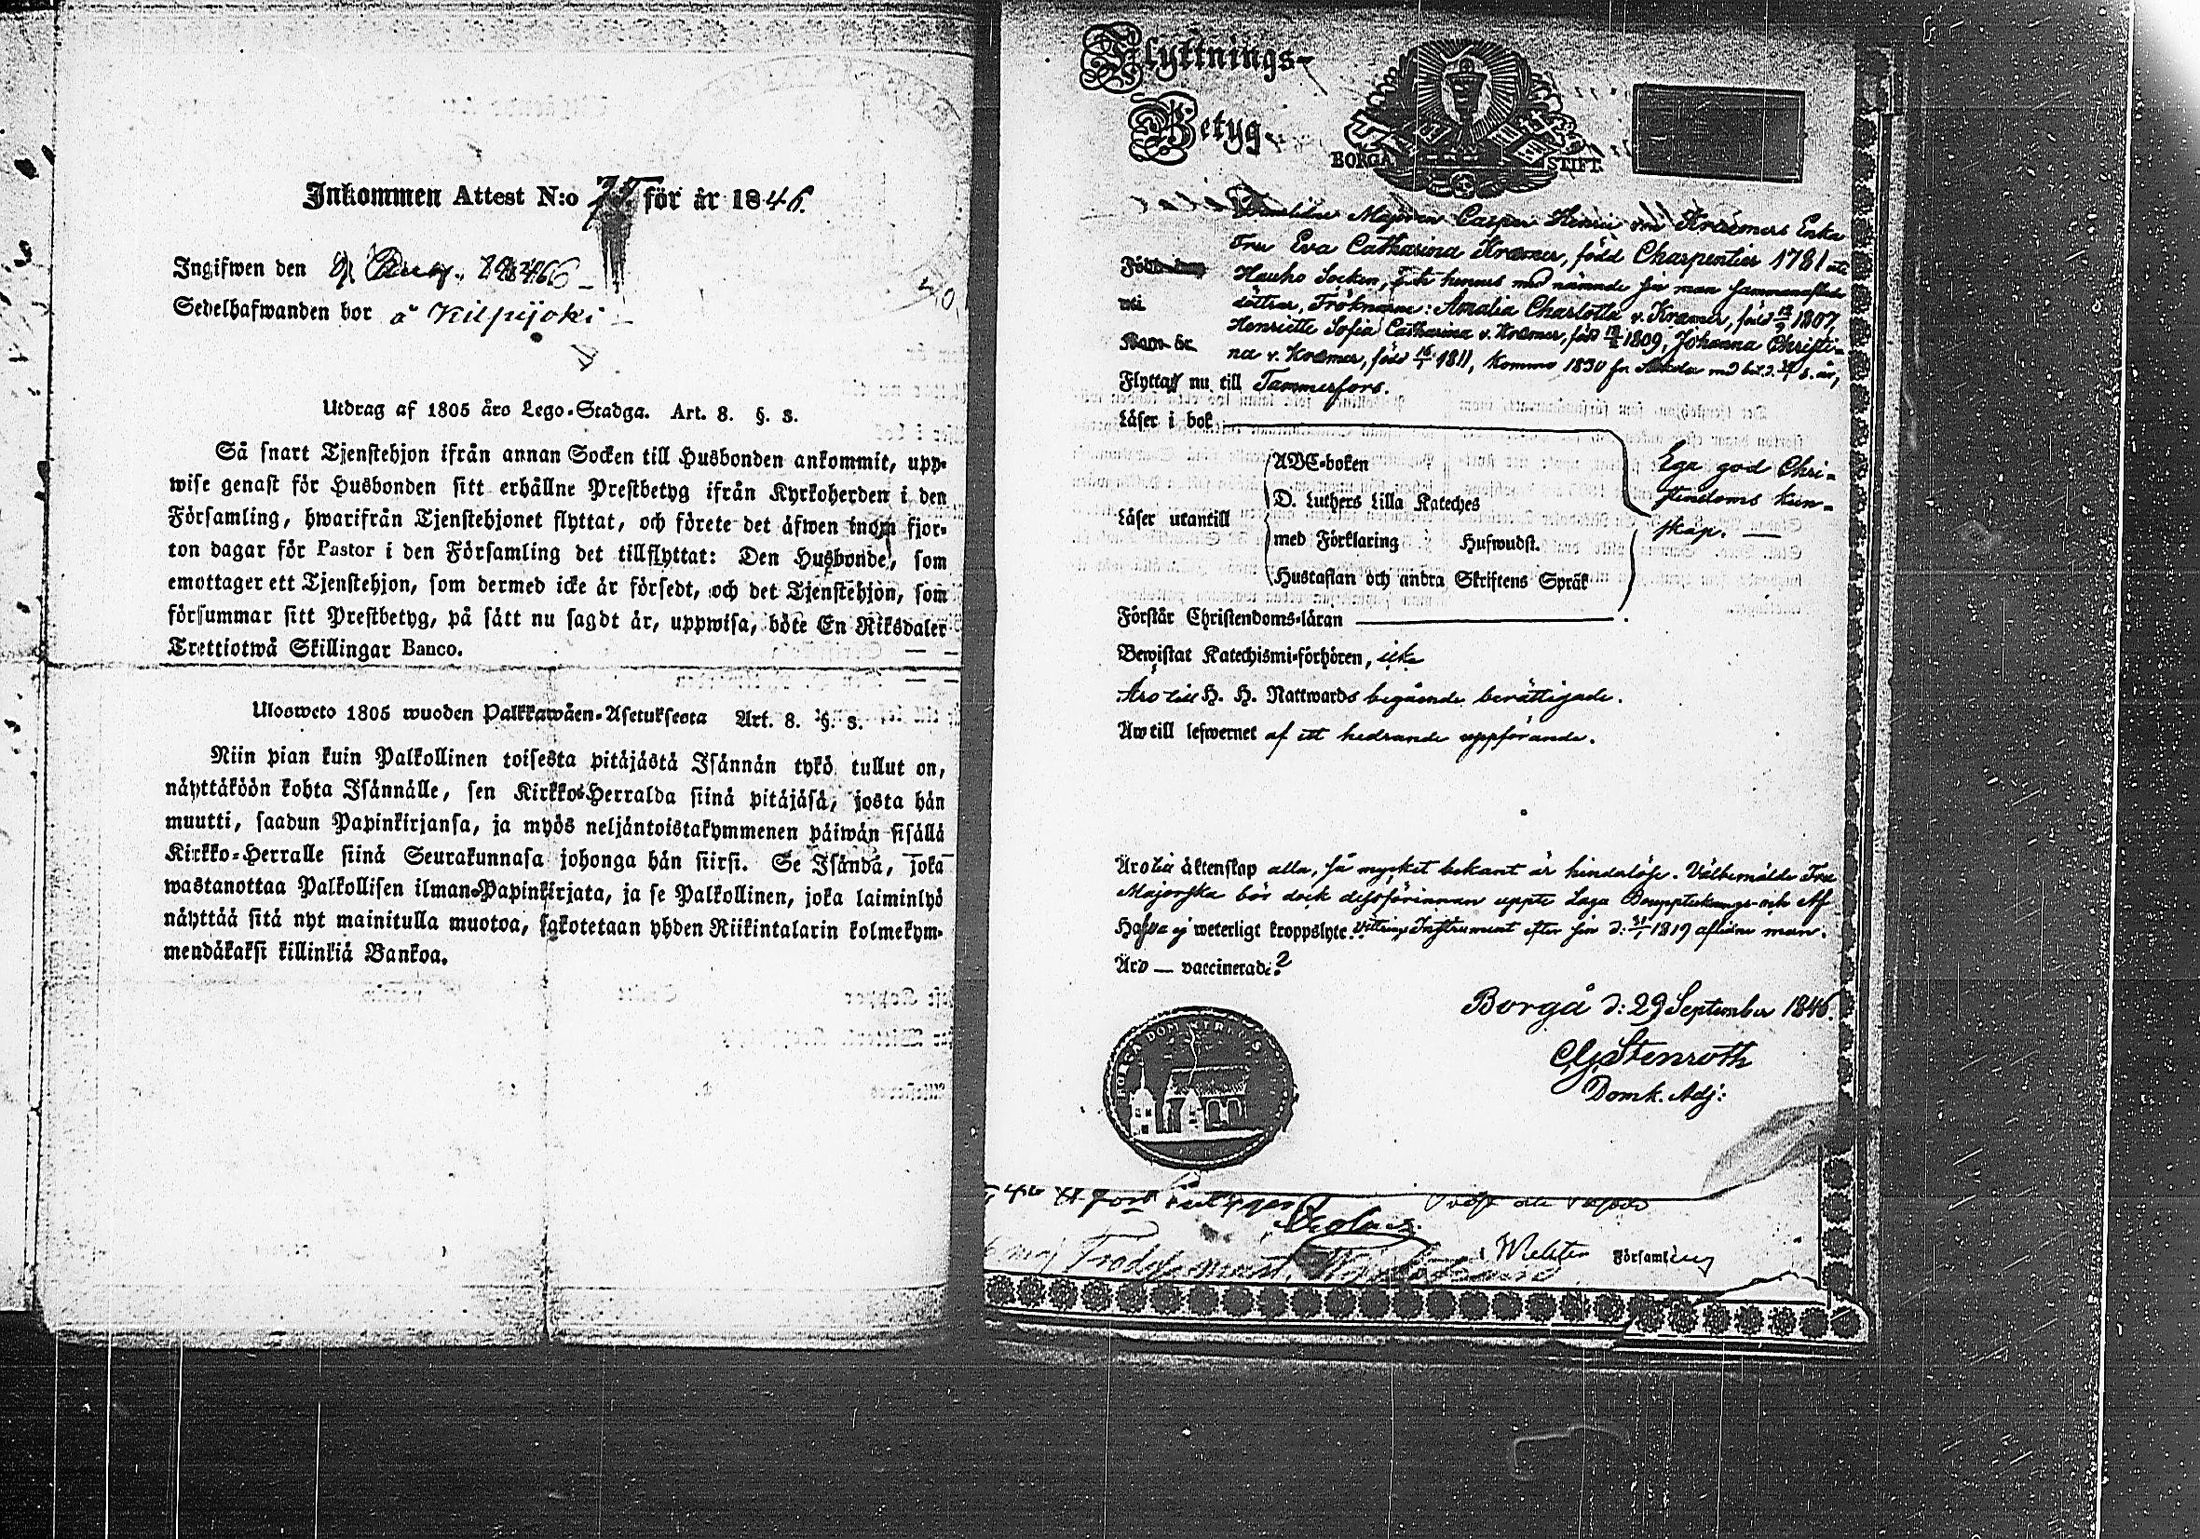 Inkommen Attest N:o för år 1846.
Ingifwen den
Sedelhafwanden bor å Kilpijoki
Utdrag af 1805 åro Lego-Stadga. Art. 8. §. 3.
Så snart Tjenstehjon ifrån annan Socken till Husbonden ankommit, upp-
wise genast för Husbonden sitt erhållne Prestbetyg ifrån Kyrkoherden i den
Församling, hwarifrån Tjenstehjonet flyttat, och förete det äfwen inom fjor-
ton dagar för Pastor i den Församling det tillflyttat: Den Husbonde, som
emottager ett Tjenstehjon, som dermed icke är försedt, och det Tjenstehjon, som
försummar sitt Prestbetyg, på sätt nu sagdt är, uppwisa, böte En Riksdaler
Trettiotwå Skillingar Banco.
Ulosweto 1805 wuoden Palkkawäen-Asetuksesta Art. 8. §. 3.
Niin pian kuin Palkollinen toisesta pitäjästä Isännän tykö tullut on,
näyttäköön kohta Isännälle, sen Kirkko-Herralda siinä pitäjäsä, josta hän
muutti, saadun Papinkirjansa, ja myös neljäntoistakymmenen päiwän sisällä
Kirkko-Herralle siinä Seurakunnasa johonga hän siirsi. Se Isändä, joka
wastanottaa Palkollisen ilman Papinkirjata, ja se Palkollinen, joka laiminlyö
näyttää sitä nyt mainitulla muotoa, sakotetaan yhden Riikintalarin kolmekym-
mendäkaksi killinkiä Bankoa.
Flyttnings-
Betyg.
BORGÅ STIFT.
Framlidne Majoren Casper Henric von Kræmers Enka
Fru Eva Catharina Kræmer, född Charpentier 1781 uti
Hauho Socken, hennes med nämnde sin man sammanaflade
döttrar, Fröknarne: Amalia Charlotta v. Kræmer, född 1807,
Henriette Sofia Catharina v. Kræmer, född 1809, Johanna Christi-
na v. Kræmer, född 1811, komna 1830 fr
Flytta nu till Tammerfors.
Läser i bok
Läser utantill
ABC-boken
D. Luthers Lilla Kateches
med Förklaring Hufwudst.
Hustaflan och andra Skriftens Språk
Ega god Chri-
stendoms kun-
skap.
Förstår Christendoms-läran
Bewistat Katechismi-förhören, icke
Äro till H. H. Nattwards begående berättigade.
Äro till lefwernet af ett hedrande uppförande.
Äro till äktenskap alla, så mycket bekant är hinderlöse. Välbemälde Fru
Majorska bör dock dessförinnan uppte Laga Bouppteknings- och Af-
Hafva ej weterligt kroppslyte. vittrings Instrument efter sin d: 1819 aflidne man.
Äro — vaccinerade?
Borgå d: 29 September 1846.
CG Stenroth
Domk. Adj:
i Församling